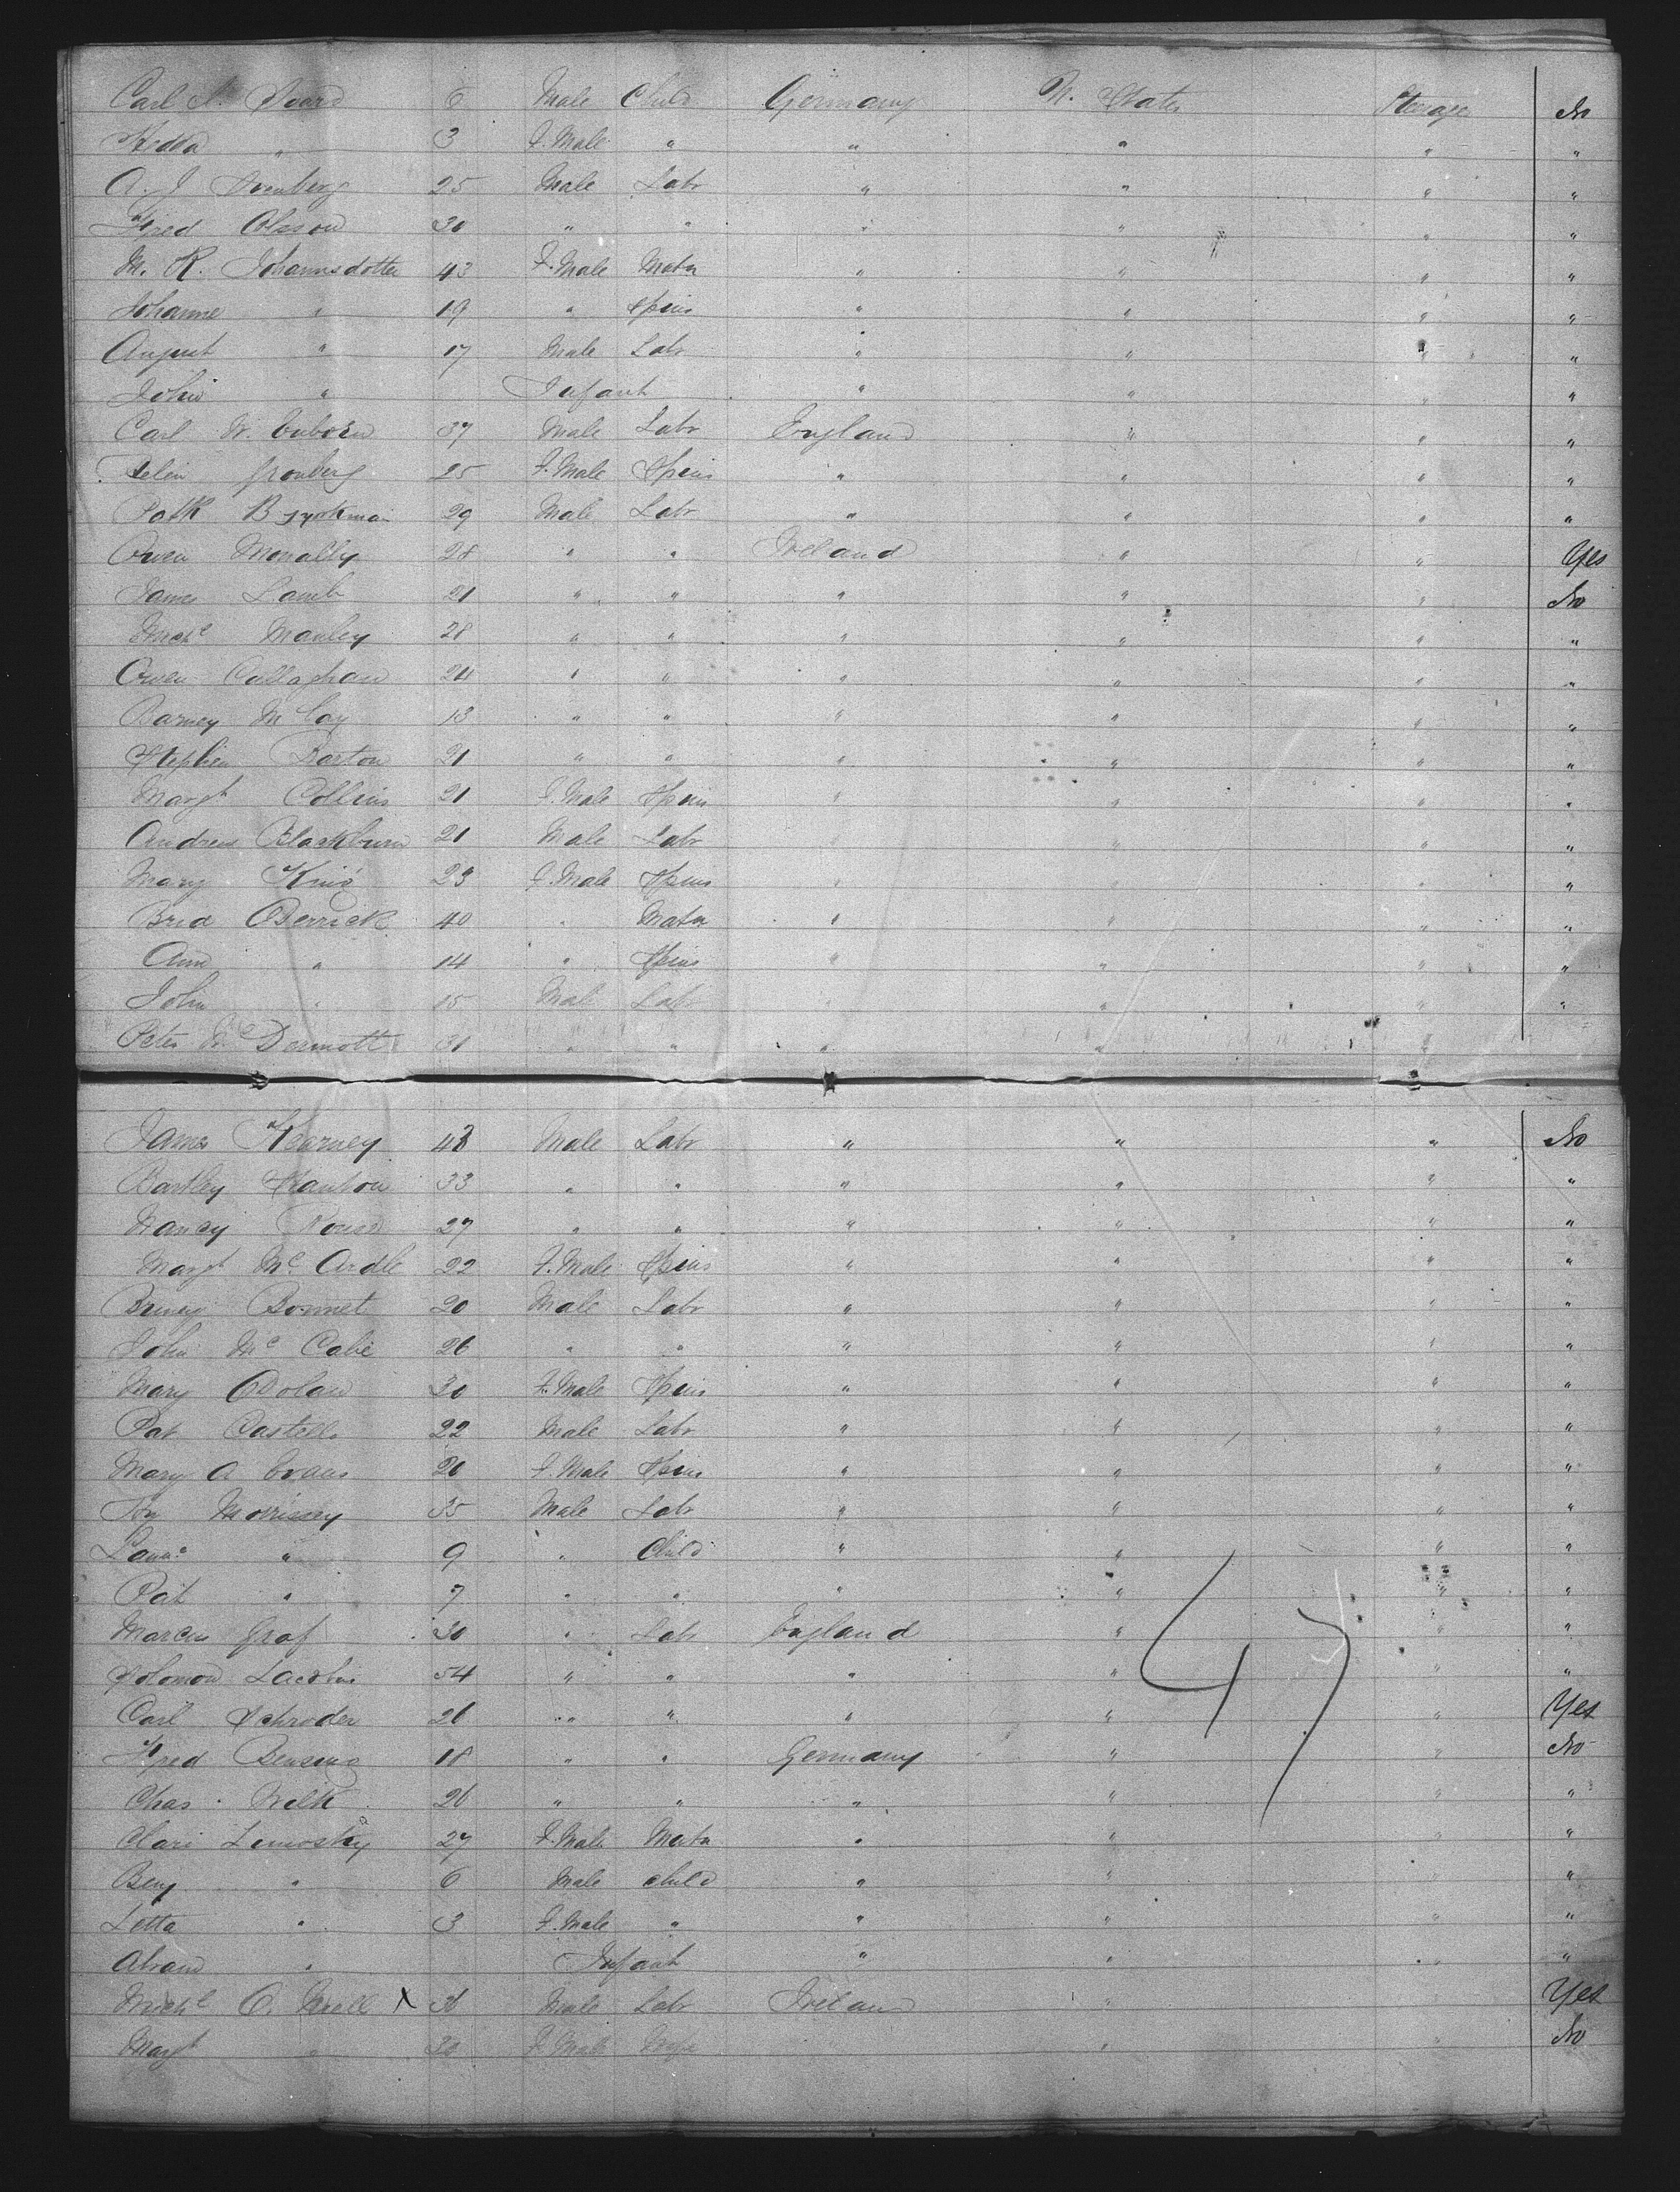 Carl A. 6 Male Child Germany U. States Steerage No
Hedda " 3 F. Male " " " " "
A. J. Svenberg 25 Male Labr " " " "
Fred Olsson 30 " " " " " "
M. K. Johannsdotter 43 F. Male Matn " " " "
Johanne " 19 " Spins " " " "
August " 17 Male Labr " " " "
John " Infant " " " "
Carl W. 37 Male Labr England " " "
Gronberg 25 F. Male Spins " " " "
29 Male Labr " " " "
Owen Mcnally 28 " " Ireland " " Yes
James Lamb 21 " " " " " No
Michl Manley 28 " " " " " "
Owen Callaghan 24 " " " " " "
Barney McCoy 13 " " " " " "
Stephen Barton 21 " " " " " "
Margt Collins 21 F. Male Spins " " " "
Andrew Blackburn 21 Male Labr " " " "
Mary King 23 F. Male Spins " " " "
Brid Derrick 40 " Matn " " " "
Ann " 14 " Spins " " " "
John " 15 Male Labr " " " "
Peter McDermott 31 " " " " "
James Kearney Male Labr " " " No
Bartley 33 " " " " " "
27 " " " " " "
Margt McArdle 22 F. Male Spins " " " "
Bonnet 20 Male Labr " " " "
John McCabe 26 " " " " " "
Mary Dolan 30 F. Male Spins " " " "
Pat Castello 22 Male Labr " " " "
Mary A Evans F. Male Spins " " " "
Morrissey 35 Male Labr " " " "
" 9 " Child " " " "
Pat " 7 " " " " " "
Marcus Graf 30 " Labr England " " "
Solomon 54 " " " " " "
Carl Schroder 26 " " " " " Yes
Fred 18 " " Germany " " No
Chas. Welk 26 " " " " " "
Clari 27 F. Male Matn " " " "
Benj " 6 Male Child " " " "
Letta " 3 F. Male " " " " "
Abram " Infant " " " "
Michl O. X Male Labr Ireland " Yes
Margt " 30 F. Male Wife " " No
47